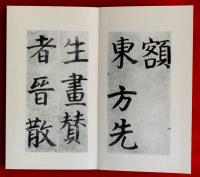 額
東方先
生畫賛
者晉散